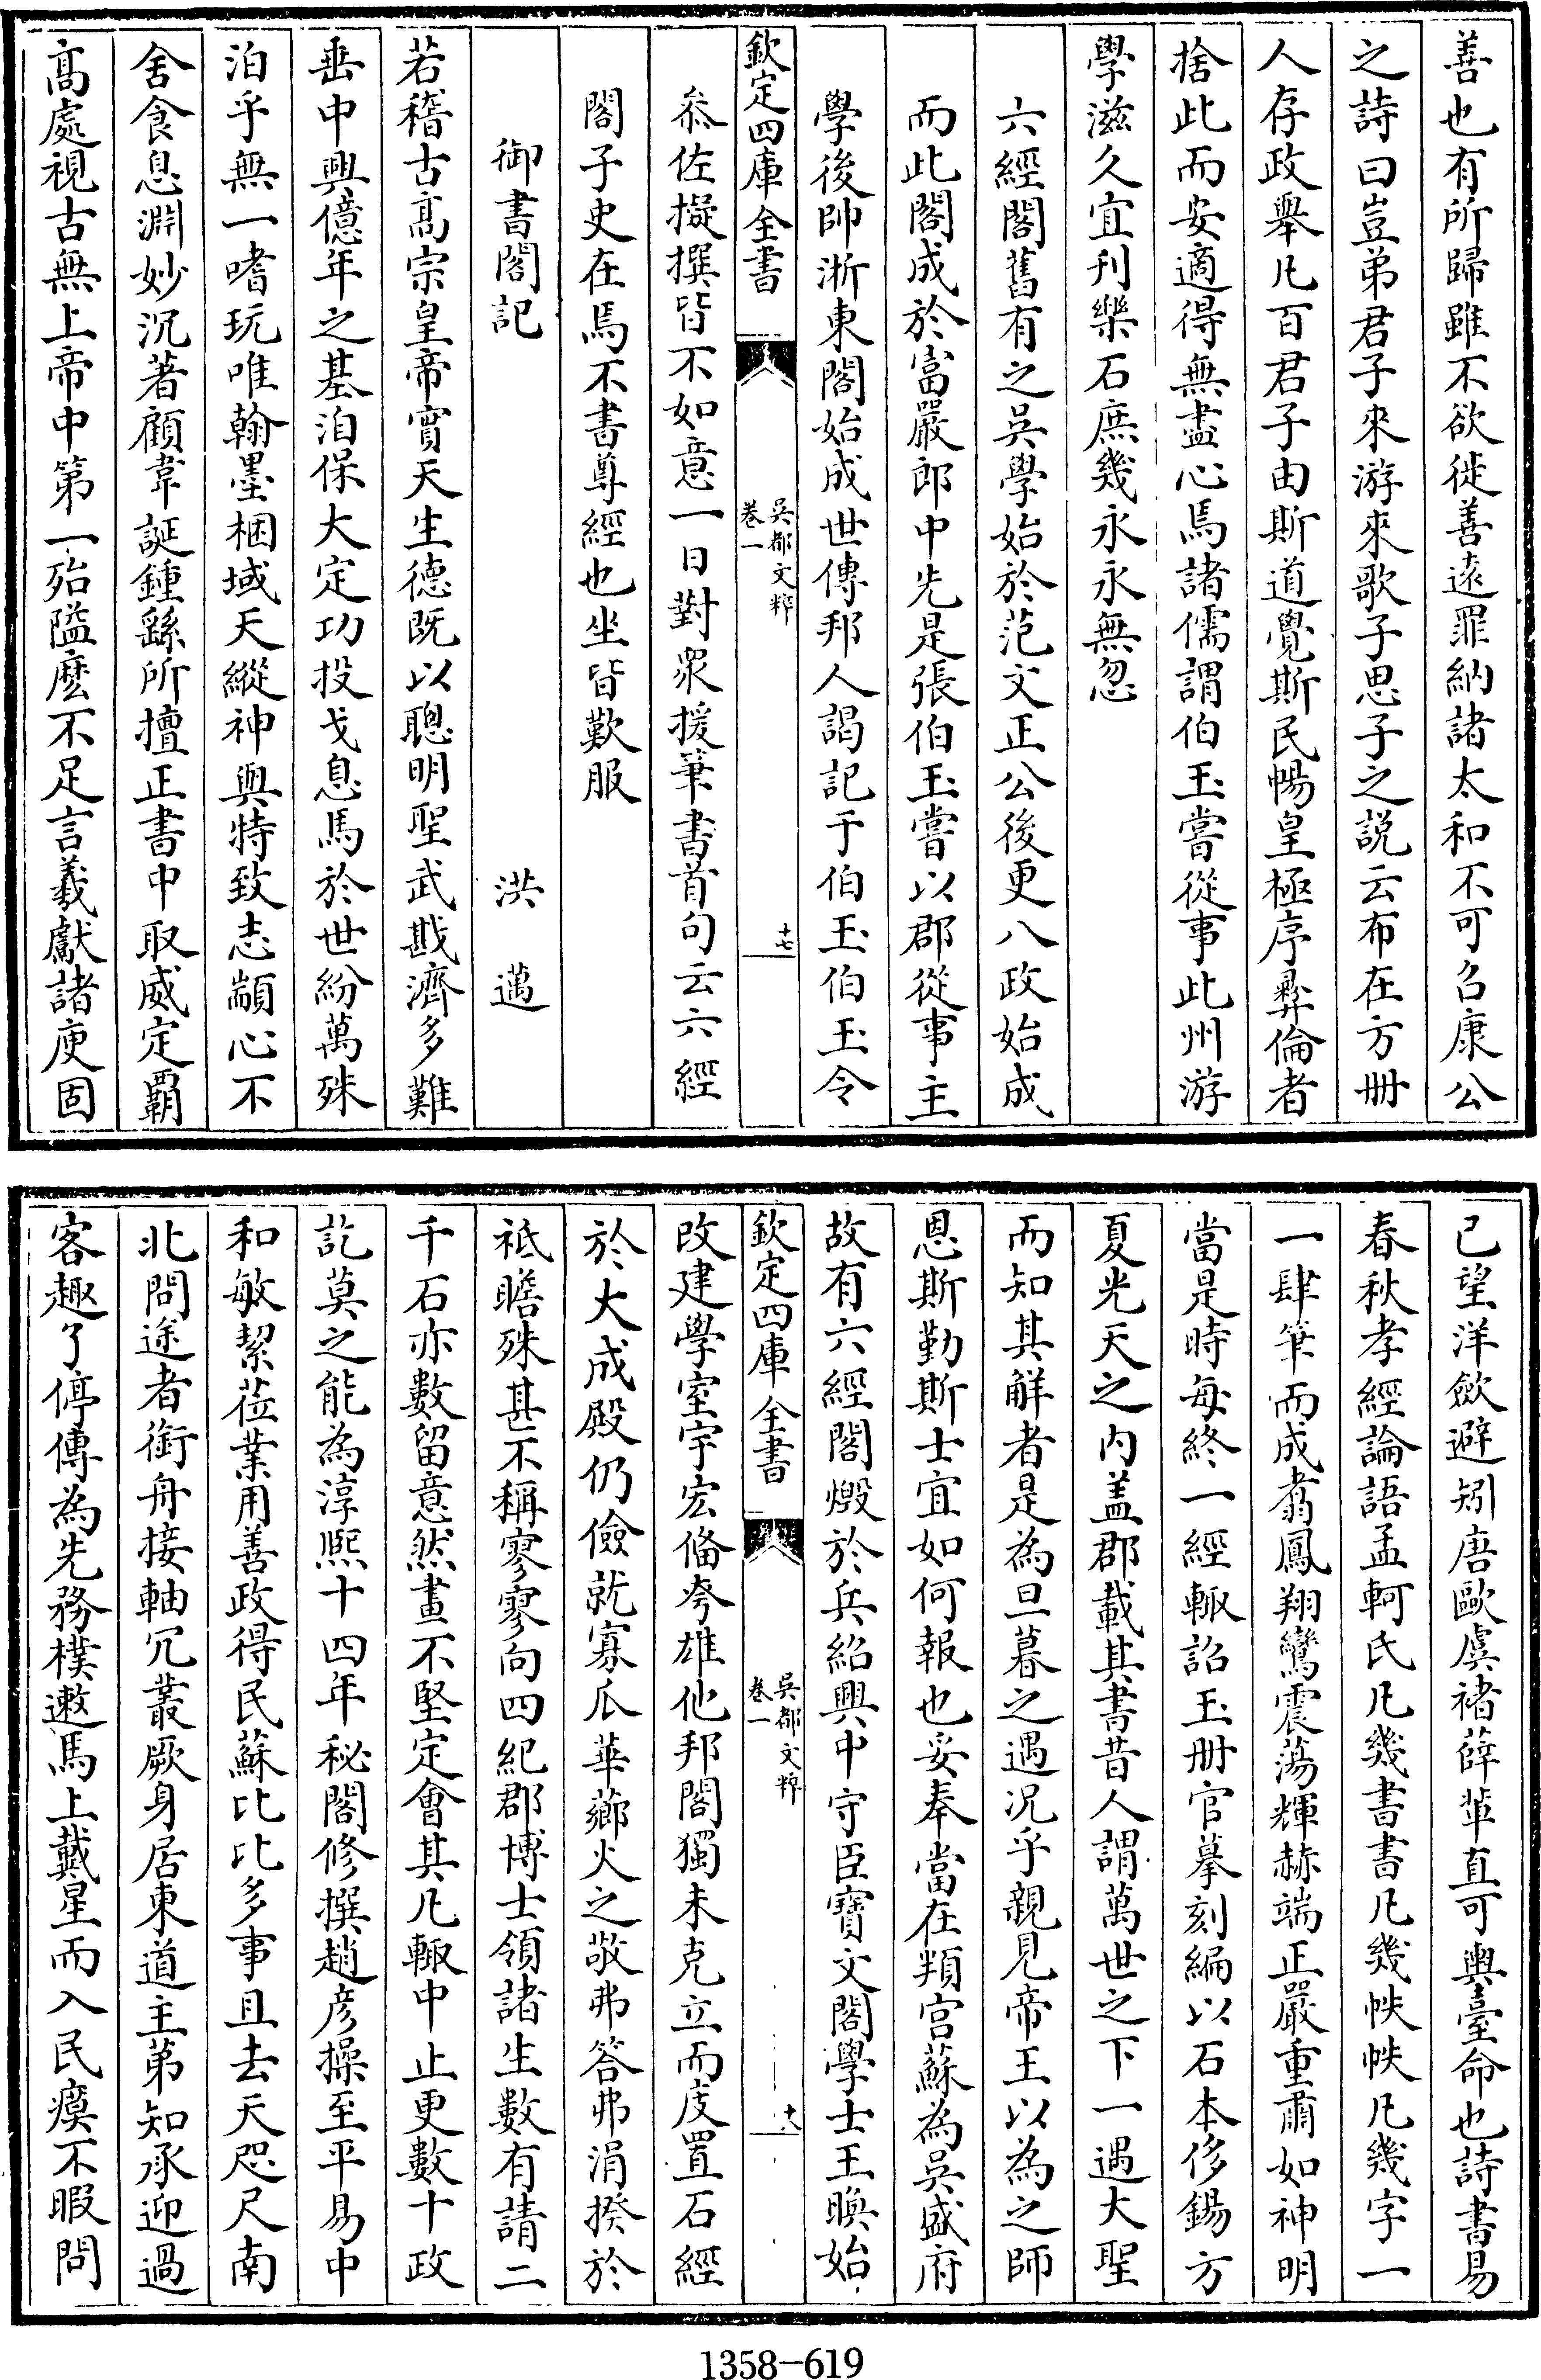 善也有所歸雖不欲徙善遠罪納諸太和不可㠯康公
之詩曰豈弟君子來游來歌子思子之説云布在方册
人存政舉凡百君子由斯道覺斯民暢皇極序彛倫者
捨此而安適得無盡心焉諸儒謂伯玉嘗從事此州游
學滋久宜刋樂石庶幾永永無忽
六經閣舊有之吳學始於范文正公後更八政始成
而此閣成於富嚴郎中先是張伯玉嘗以郡從事主
學後帥浙東閣始成世傳邦人謁記于伯玉伯玉令
欽定四庫全書
吳都文粹
卷一
十七
叅佐擬撰皆不如意一日對衆援筆書首句云六經
閣子史在焉不書尊經也坐皆歎服
御書閣記
洪邁
若稽古髙宗皇帝實天生德既以聰明聖武戡濟多難
垂中興億年之基洎保大定功投戈息馬於世紛萬殊
泊乎無一嗜玩唯翰墨梱域天縱神與特致志顓心不
舍食息淵妙沉著顧韋誕鍾繇所擅正書中取威定覇
髙處視古無上帝中第一殆隘麽不足言羲獻諸庾固
已望洋歛避矧唐歐虞褚薛軰直可輿臺命也詩書易
春秋孝經論語孟軻氏凡幾書書凡幾帙帙凡幾字一
一肆筆而成翥鳳翔鸞震蕩輝赫端正嚴重肅如神明
當是時每終一經輙詔玉册官摹刻編以石本侈錫方
夏光天之内盖郡載其書昔人謂萬世之下一遇大聖
而知其解者是為旦暮之遇况乎親見帝王以為之師
恩斯勤斯士宜如何報也妥奉當在頖宫蘇為吳盛府
故有六經閣燬於兵紹興中守臣寳文閣學士王㬇始
欽定四庫全書
吳都文粹
卷一
十八
改建學室宇宏偹夸雄他邦閣獨未克立而庋置石經
於大成殿仍儉就寡瓜華薌火之敬弗答弗涓揆於
祗瞻殊甚不稱寥寥向四紀郡博士領諸生數有請二
千石亦數留意然畫不堅定會其凡輙中止更數十政
訖莫之能為淳熙十四年秘閣修撰趙彦操至平易中
和敏㓗莅業用善政得民蘇比比多事且去天咫尺南
北問途者銜舟接軸冗叢厥身居東道主苐知承迎過
客趣了停傳為先務樸遬馬上戴星而入民瘼不暇問
1358-619